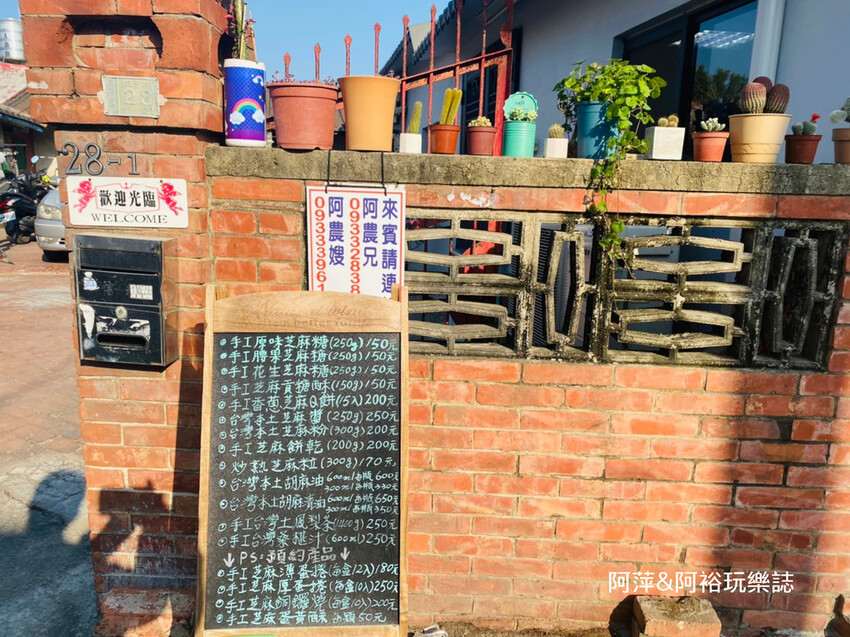 123
28-1
歡迎光臨
WELCOME
來賓請連
阿農兄
09332838
阿農嫂
09333961
手工原味芝麻糖(250g)150元
手工腰果芝麻糖(250g)150元
手工花生芝麻糖(250g)150元
手工芝麻貢糖酥(150g)150元
手工香蔥芝麻Q餅(15入)200元
台灣本土芝麻醬(250g)250元
台灣本土芝麻粉(300g)200元
手工芝麻餅乾(200g)200元
炒熟芝麻粒(300g)170元
台灣本土胡麻油600ml每瓶600元
300ml每瓶330元
台灣本土胡麻清油600ml每瓶650元
300ml每瓶350元
手工台灣土鳳梨条(400g)250元
手工台灣桑椹汁(600ml)250元
↓PS:預約產品↓
手工芝麻薄蛋捲(每盒12入)180元
手工芝麻厚蛋捲(每盒10入)250元
手工芝麻銅鑼燒(每盒10入)200元
手工芝麻蛋黃酥 每顆50元
阿萍&阿裕玩樂誌